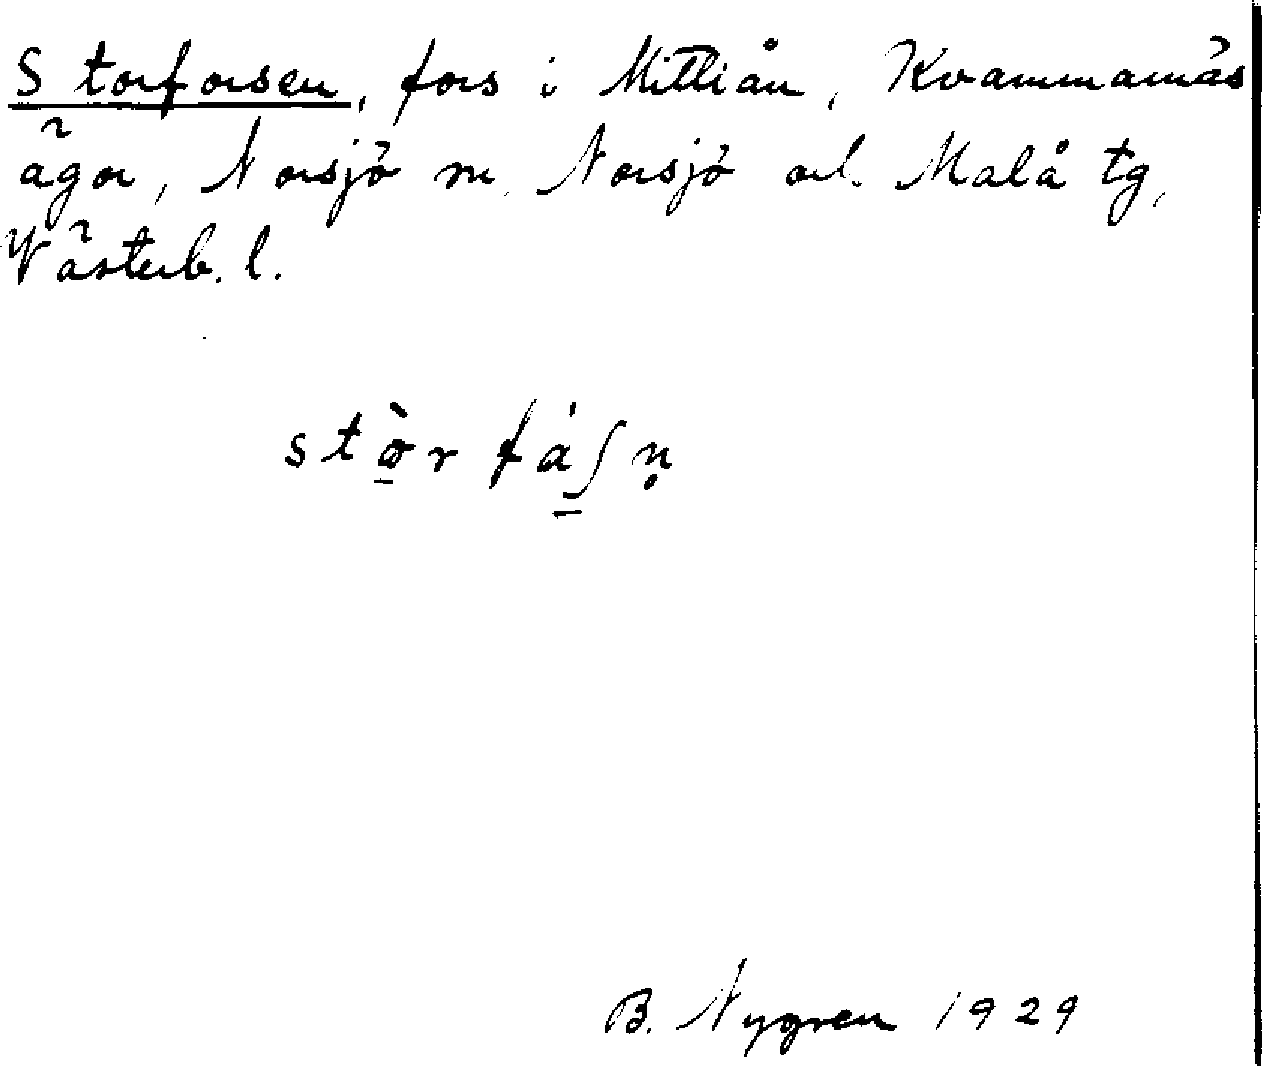 Storforsen, fors i Mittiån, Kvammarnäs
ägor, Norsjö sn, Norsjö o. Malå tg,
Västerb. l.
stòrfáʃn̥
B. Nygren 1929